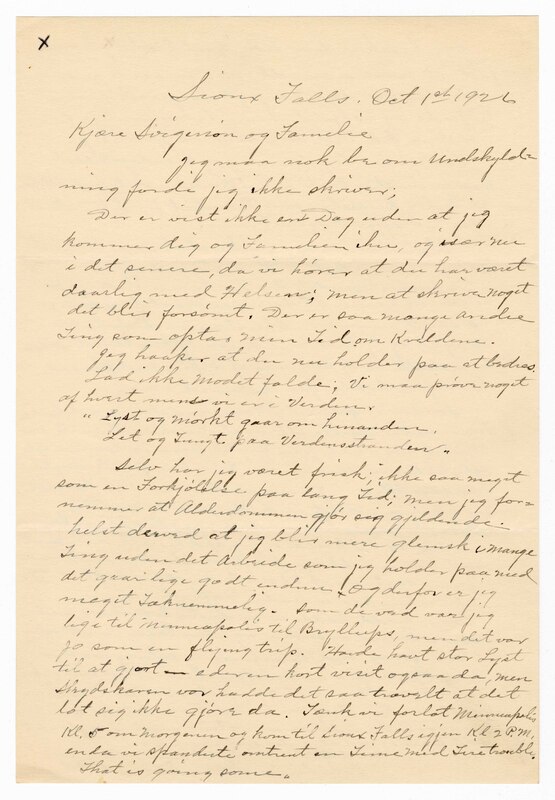 x
Sioux Falls. Oct 1st 1926
Kjære Sörgenson og Familie
jeg maa nok be om Undskyld-
ning fordi jeg ikke skriver;
Der er vist ikke en Dag uden at jeg
kommer dig og Familien ihu, og især nu
i det senere, da vi hører at du har været
daarlig med Helsen; men at skrive noget
det blir forsömt. Der er saa mange andre
Ting som optar min Tid om Kveldene.
Jeg haaper at du nu holder paa at bedres.
Lad ikke Modet falde; Vi maa pröve noget
af hvert mens vi er i Verden.
"Lyst og mörkt gaar om hinanden.
Let og Tungt paa Verdensstranden"
Selv har jeg været frisk; ikke saa meget
som en Forkjölelse paa lang Tid; men jeg for-
nemmer at Alderdommen gjör sig gjeldende.
helst derved at jeg blir mere glemsk i mange
Ting uden det Arbeide som jeg holder paa med
det gaar lige godt endnu. Og derfor er jeg
meget Taknemmelig. Som du ved var jeg
lige til Minneapolis til Bryllups, men det var
jo som en flying trip. Havde havt stor Lyst
til at gjort eder en kort visit ogsaa da, men
Skydskaren vor hadde det saa travelt at det
lot sig ikke gjöre da. Tænk vi forlot Minneapolis
Kl. 5 om Morgenen og kom til Sioux Falls igjen Kl 2 P.M.
enda vi spanderte omtrent en Time med Tire trouble.
That is going some.